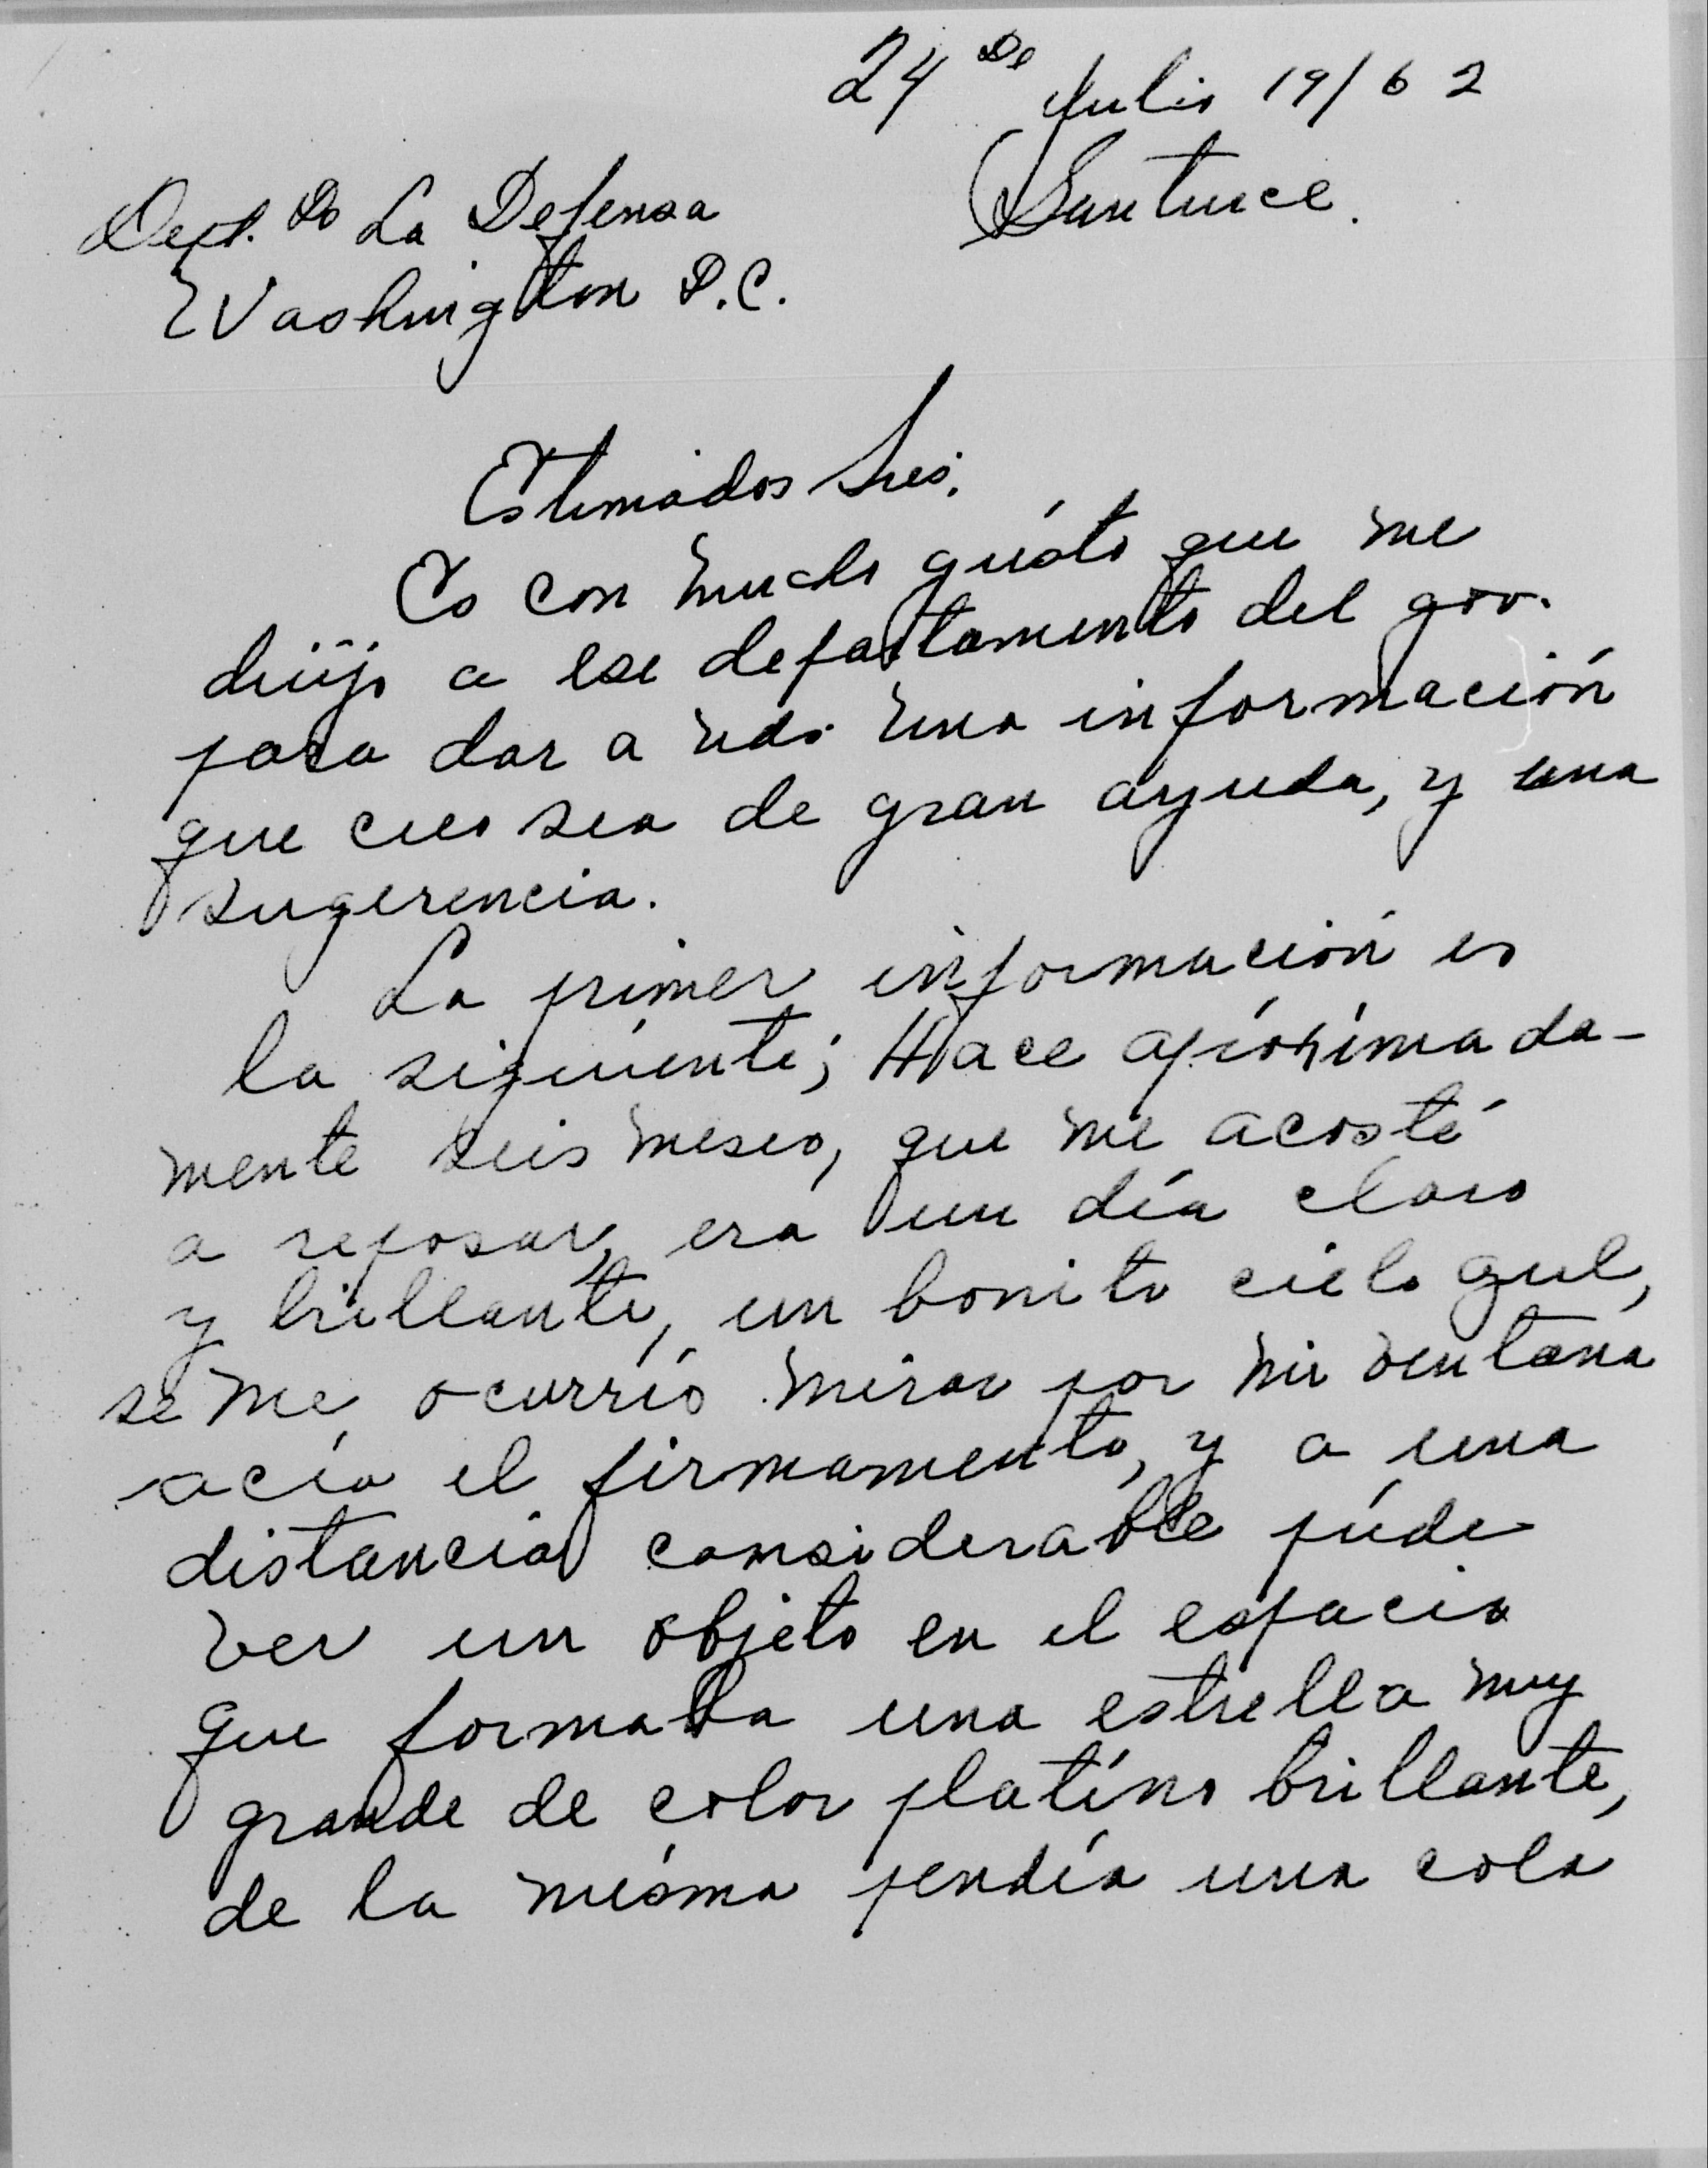 24 De Julio 19/62
Santurce.
Dept. De La Defensa
Washington D.C.
Estimados Sres.
Es con mucho gústo que me
dirijo a ese departamento del gov.
para dar a uds. una información
que creo sea de gran ayuda, y una
sugerencia.
La primer información es
la siguiente; Hace apróximada-
mente seis meses, que me acosté
a reposar, era un día claro
y brillante, un bonito cielo azul,
se me ocurrió mirar por mi ventana
acía el firmamento, y a una
distancia considerable púde
ver un objeto en el espacio
que formaba una estrella muy
grande de color platíno brillante,
de la misma pendía una cola